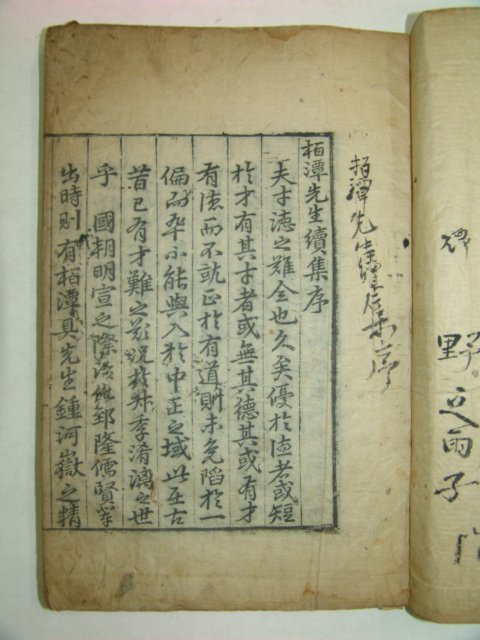 野之雨子
栢潭先生續集序
栢潭先生續集序
夫才德之難全也久矣優於德者或短
於才有其才者或無其德其或有才
有德而不就正於有道則未免陷於一
偏而卒不能與入於中正之域此在古
昔已有才難之歎況於叔季淆漓之世
乎 國朝明宣之際治化郅隆儒賢輩
出時則有栢潭具先生鍾河嶽之精